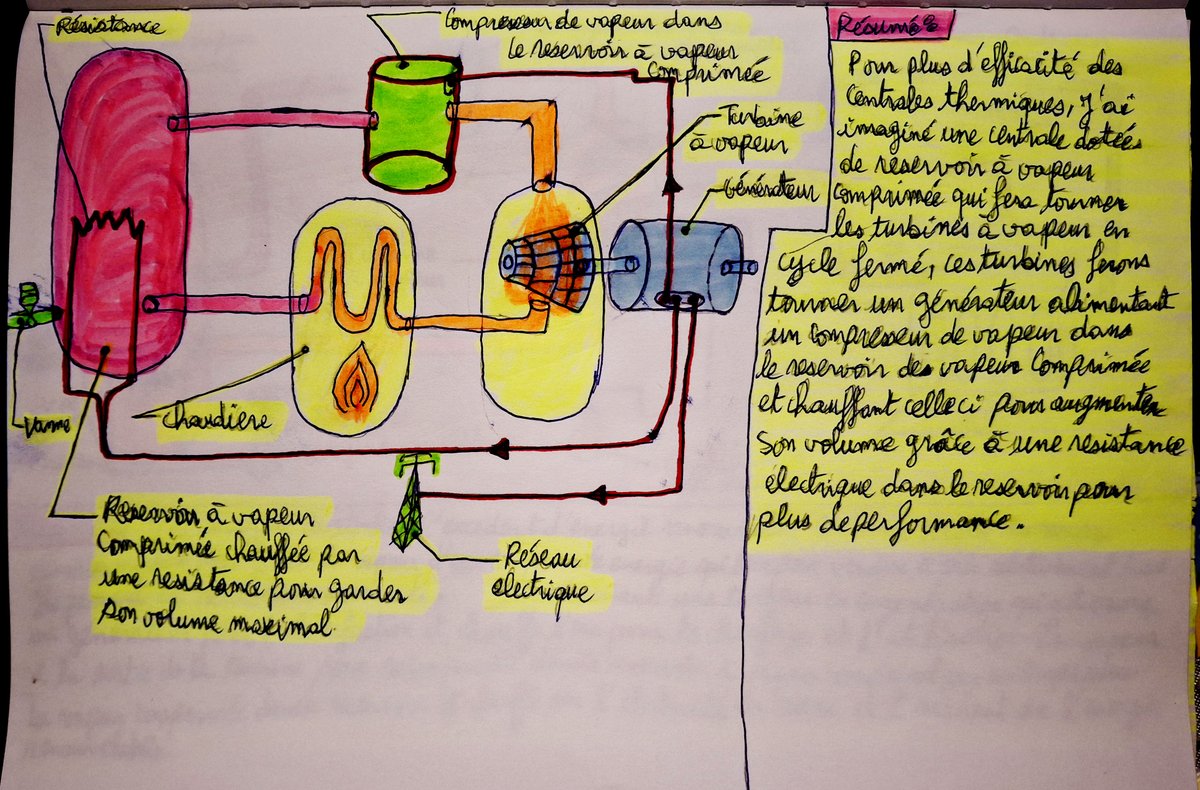 Résistance
Compresseur de vapeur dans
le reservoir à vapeur
Comprimée
Turbine
à vapeur
Générateur
Vanne
Chaudière
Reservoir à vapeur
Comprimée chauffée par
une resistance pour garder
son volume maximal.
Réseau
électrique
Résumé:
Pour plus d'efficacité des
Centrales thermiques, J'ai
imaginé une centrale dotées
de reservoir à vapeur
Comprimée qui fera tourner
les turbines à vapeur en
Cycle fermé, ces turbines ferons
tourner un générateur alimentant
un compresseur de vapeur dans
le reservoir des vapeur Comprimée
et chauffant celle ci pour augmenter
Son volume grâce à une resistance
électrique dans le reservoir pour
plus de performance.